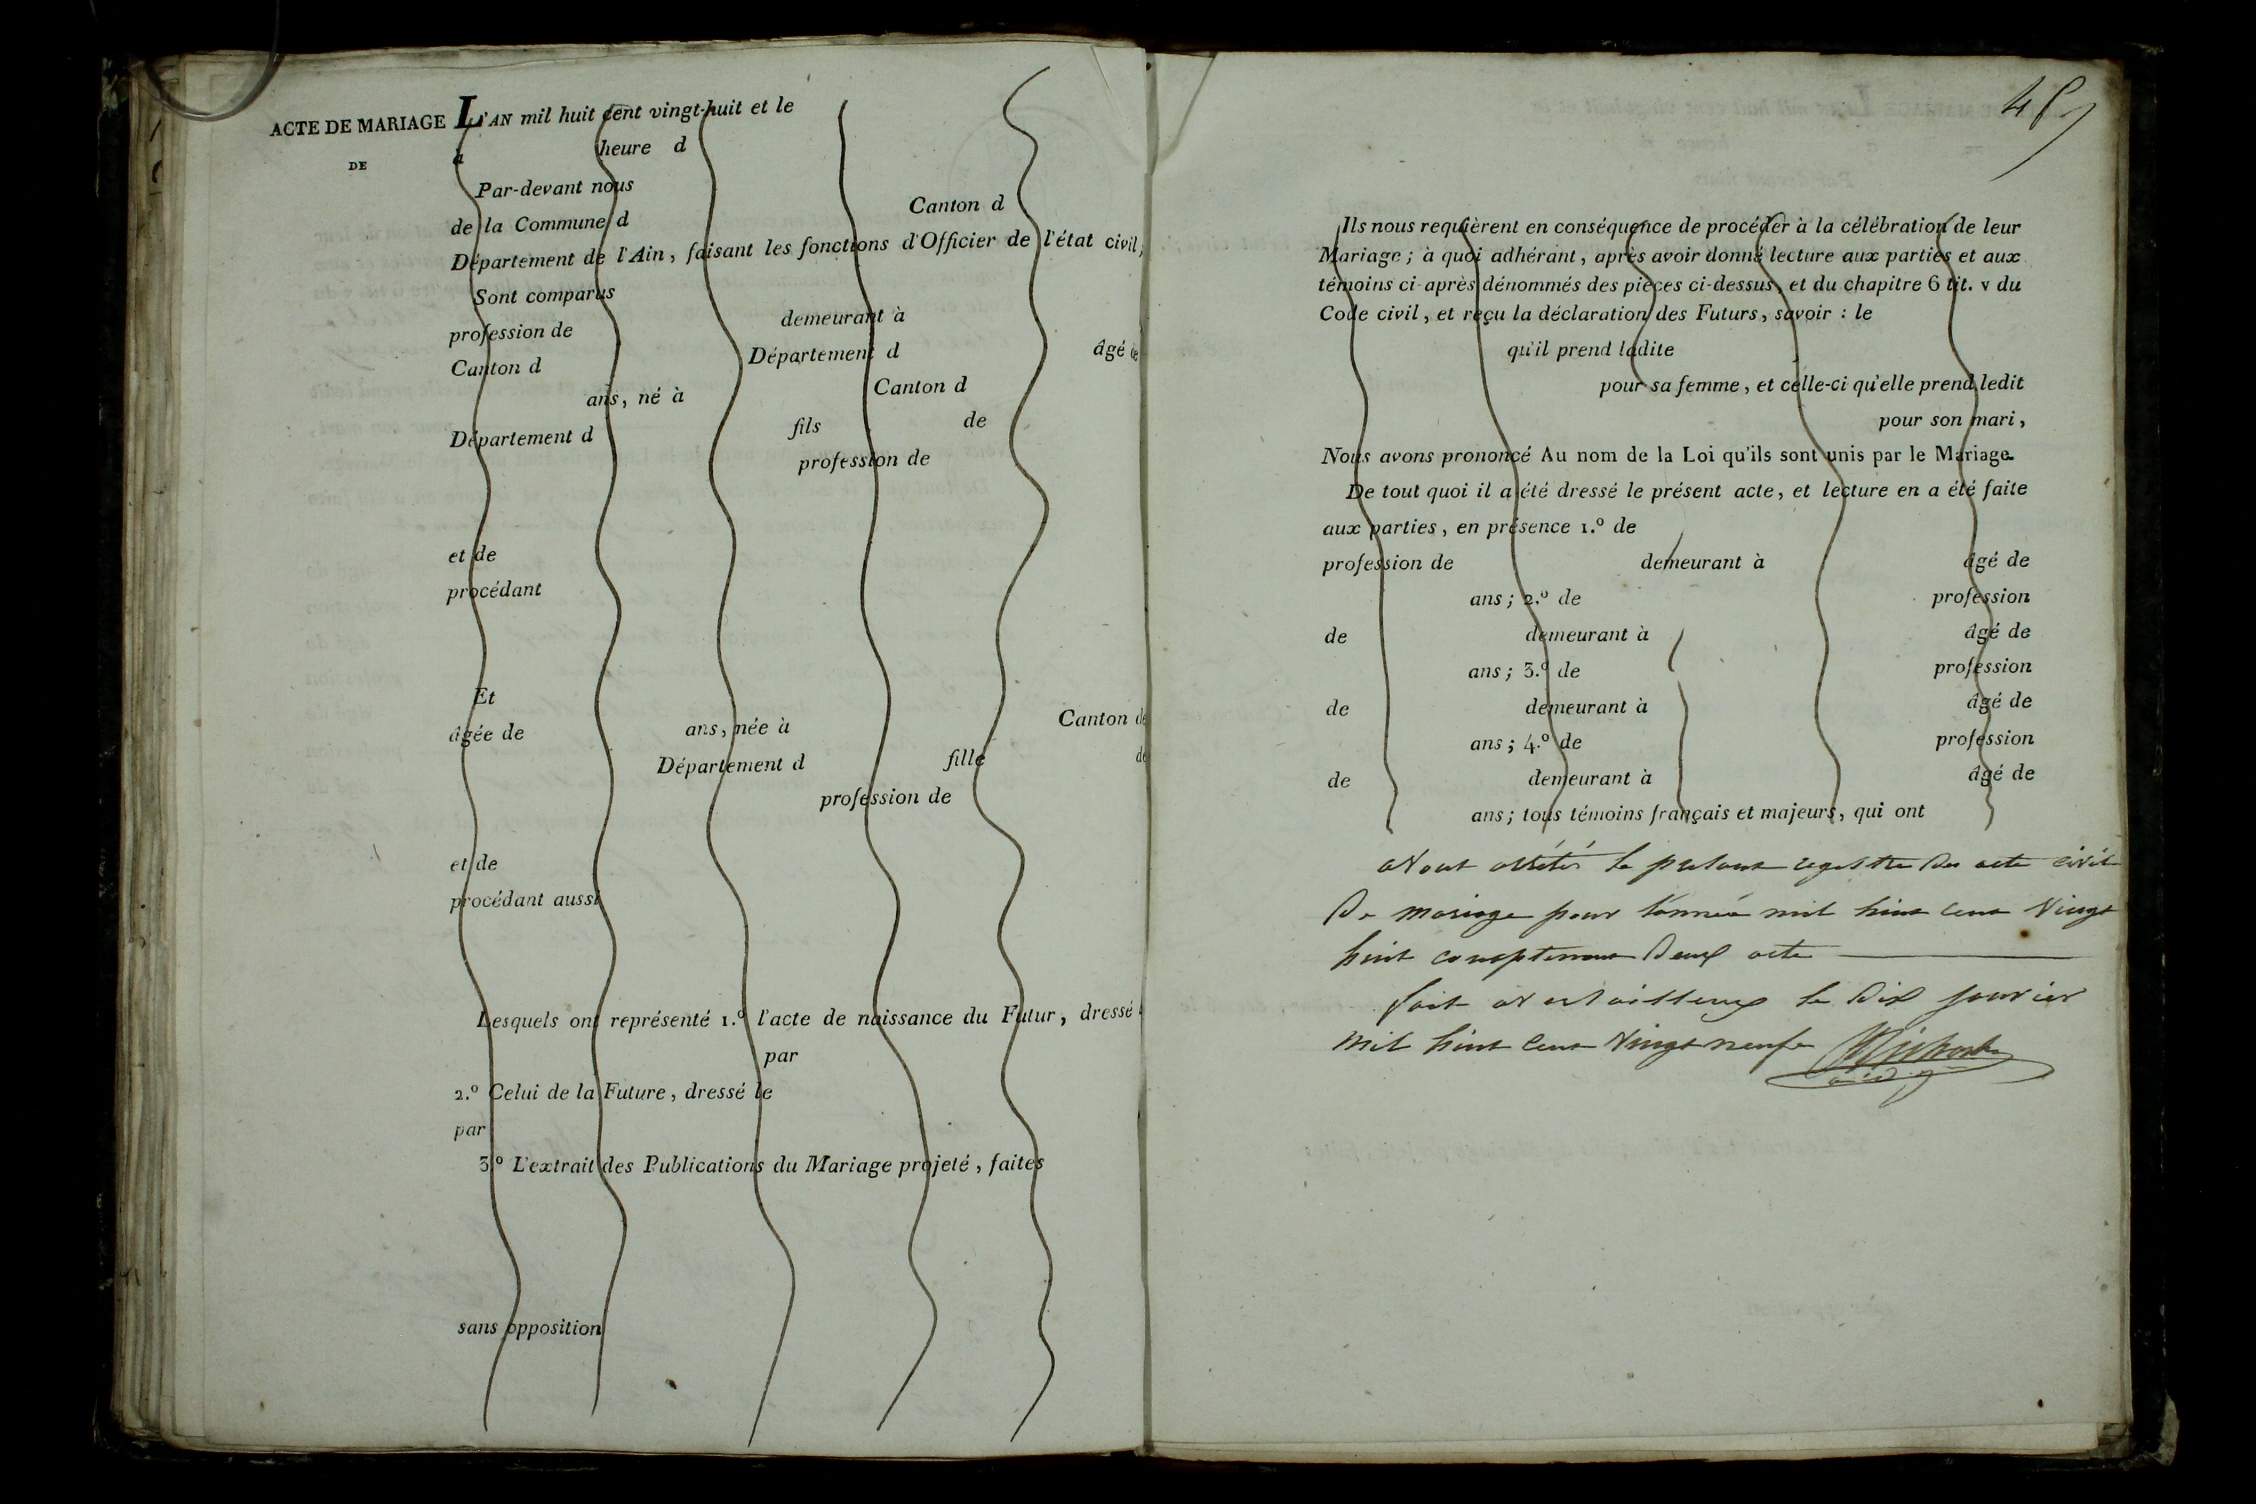 ACTE DE MARIAGE
DE
L'AN mil huit cent vingt-huit et le
à heure d
Par-devant nous
de la Commune d Canton d
Département de l'Ain, faisant les fonctions d'Officier de l'état civil,
Sont comparus
profession de demeurant à
Canton d Département d âgé de
ans, né à Canton d
Département d fils de
profession de
et de
procédant
Et
âgée de ans, née à Canton de
Département d fille de
profession de
et de
procédant aussi
Lesquels ont représenté 1.º l'acte de naissance du Futur, dressé
par
2.º Celui de la Future, dressé le
par
3.º L'extrait des Publications du Mariage projeté, faites
sans opposition
Ils nous requièrent en conséquence de procéder à la célébration de leur
Mariage; à quoi adhérant, après avoir donné lecture aux parties et aux
témoins ci-après dénommés des pièces ci-dessus, et du chapitre 6 tit. v du
Code civil, et reçu la déclaration des Futurs, savoir : le
qu'il prend ladite
pour sa femme, et celle-ci qu'elle prend ledit
pour son mari,
Nous avons prononcé Au nom de la Loi qu'ils sont unis par le Mariage.
De tout quoi il a été dressé le présent acte, et lecture en a été faite
aux parties, en présence 1.º de
profession de demeurant à âgé de
ans; 2.º de profession
de demeurant à âgé de
ans; 3.º de profession
de demeurant à âgé de
ans; 4.º de profession
de demeurant à âgé de
ans; tous témoins français et majeurs, qui ont
le registre acte civil
De mariage pour l'année mil huit cent Vingt
huit Deux acte
fait le Dix
Mil huit Cent Vingt neufe